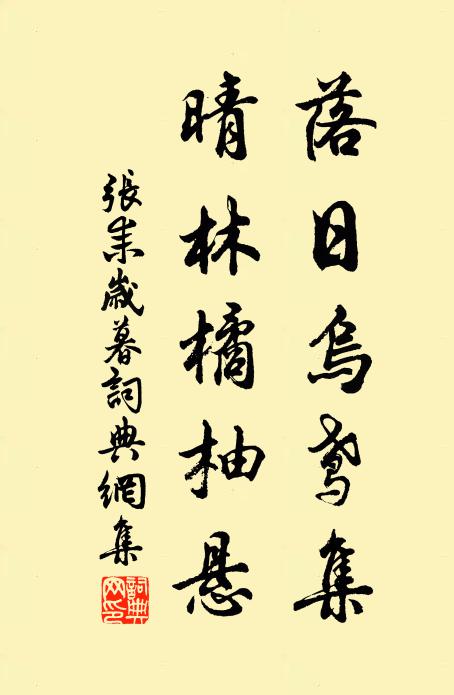 落日烏鳶集
晴林橘柚懸
張耒歲暮詞典網集
詞典網印